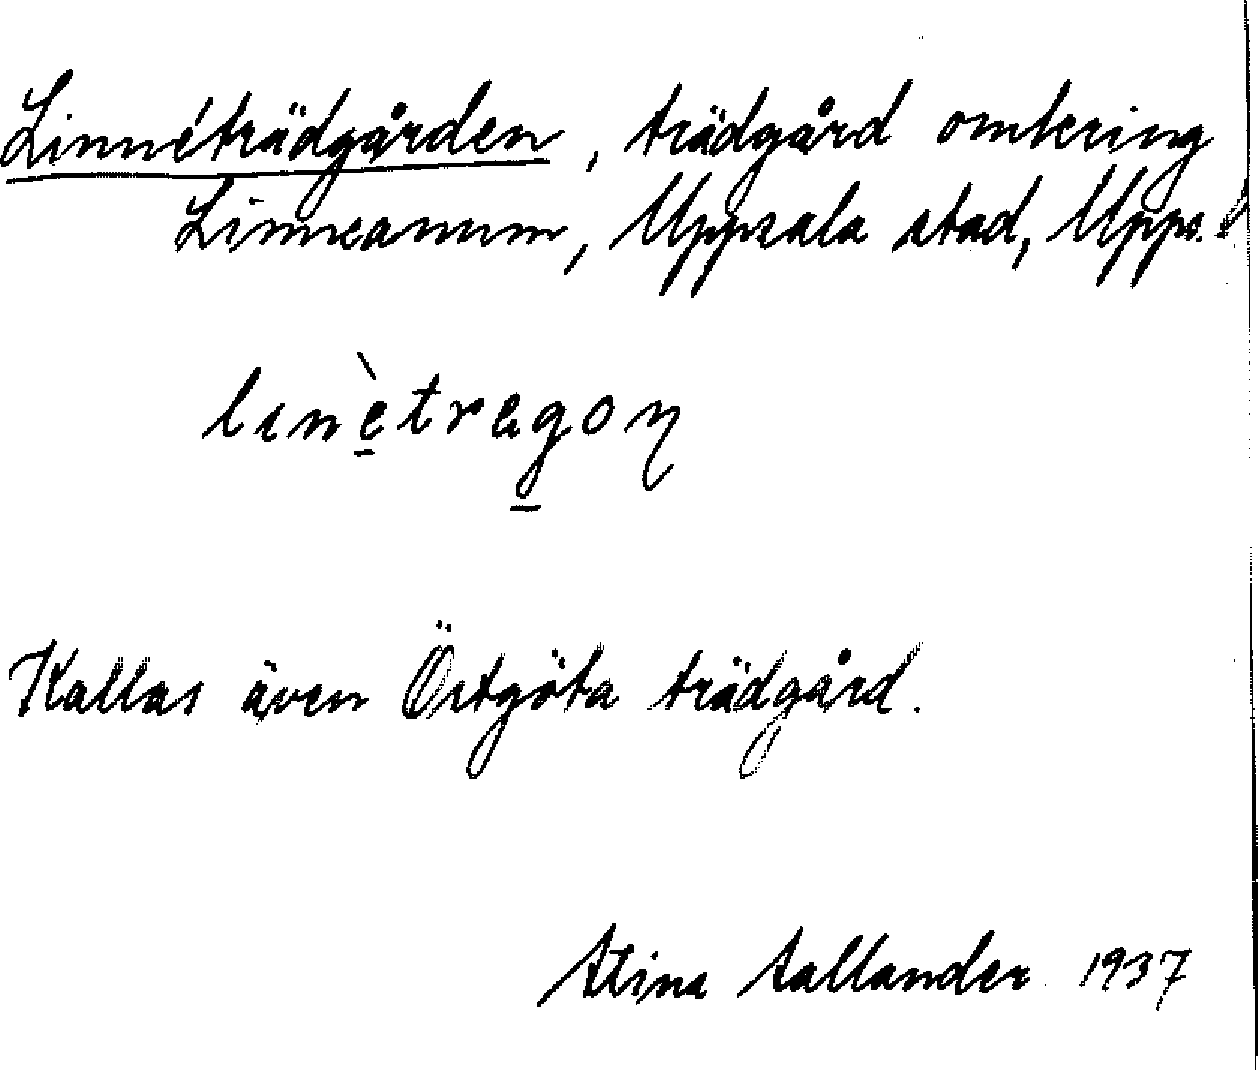 Linnéträdgården, trädgård omkring
Linneanum, Uppsala stad, Upps.
linètragoɳ
Kallas även Östgöta trädgård.
Stina Sallander 1937